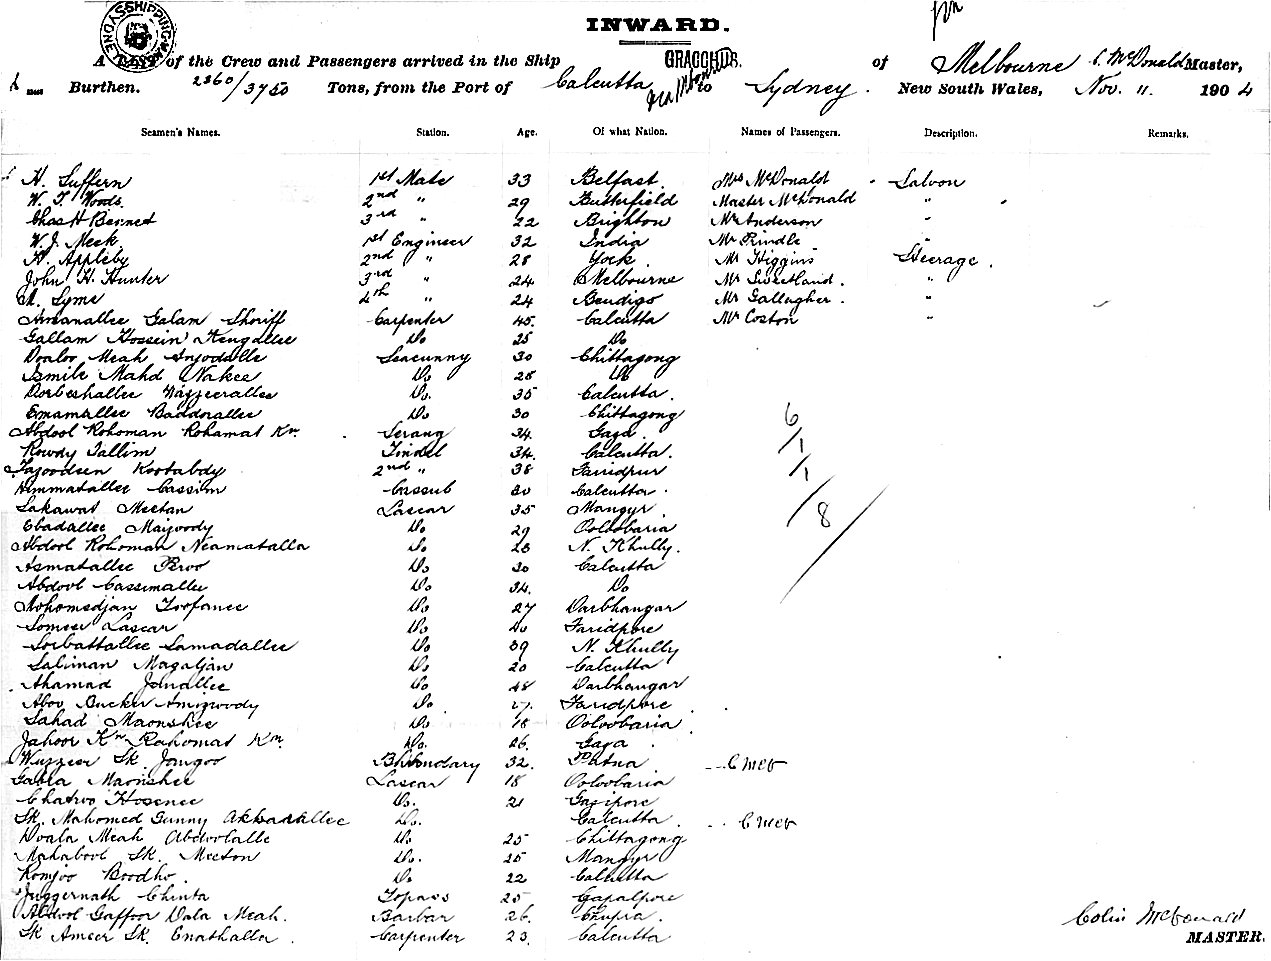 INWARD.
A LIST of the Crew and Passengers arrived in the Ship GRACCHUS. of Melbourne C. McDonald Master,
Burthen. 2360/3760 Tons, from the Port of Calcutta to Sydney. New South Wales, Nov. 11. 1904
Seamen's Names. Station. Age. Of what Nation. Names of Passengers. Description. Remarks.
H. Suffern 1st Mate 33 Belfast. Mrs McDonald Saloon
W. T. Woods. 2nd " 29 Butterfield Master McDonald "
Chas H Bennet 3rd " 22 Brighton Mr Anderson "
W. J. Meek. 1st Engineer 32 India Mr Prindle "
H. Appleby 2nd " 28 York. Mr Higgins Steerage.
John H. Hunter 3rd " 24 Melbourne Mr Sweetland. "
A. Syme 4th " 24 Bendigo Mr Gallagher. "
Amanallee Galam Shoriff Carpenter 45. Calcutta Mr Coston "
Gallam Hossein Hengallee Do 25 Do
Doaloo Meah Anjodalle Seacunny 30 Chittagong
Ismile Mahd Nakee Do 28 Do
Dorbeshallee Nazeerallee Do. 35 Calcutta.
Emamallee Baddorallee Do 30 Chittagong
Abdool Rohoman Rohamat Kn. Serang 34. Gaya.
Rowdy Tallim Tindel 34. Calcutta.
Tajoodeen Kootabdy 2nd " 38 Faridpur
Himmatallee Cassim Cassub 30 Calcutta.
Sakawat Meetan Lascar 35 Mangyr.
Ebadallee Maizoody Do 29 Ooloobaria
Abdool Rohoman Neamatalla Do 23 N. Khully.
Asmatallee Peroo Do 30 Calcutta
Abdool Cassimallee Do 34. Do
Mohomedjan Toofanee Do 27 Darbhangar
Someer Lascar Do 40 Faridpore
Sorbattallee Samadallee Do 39 N. Khully
Saliman Magaljan Do 20 Calcutta
Ahamad Jonallee Do 48 Darbhangar
Aboo Bucker Amizoody Do. 27. Faridpore.
Sahad Maonshee Do 18 Ooloobaria
Jahoor Kn Rahomat Kn. Do. 26. Gaya.
Wuzeer Sk. Jomgoo Bhandary 32. Patna
Maonshee Lascar 18 Ooloobaria
Chatroo Hosenee Do. 21 Gazipore
Sk. Mahomed Gunny Akbarallee Do. Calcutta.
Doala Meah Abdoolalle Do 25 Chittagong
Mahabool Sk. Meeton Do. 25 Mangyr
Romjoo Boodho. Do 22 Calcutta
Juggernath Chinta Topass 25 Gopalpore
Abdool Gaffoor Dala Meah. Barbar 26. Chupra.
Sk Ameer Sk. Enathalla. Carpenter 23. Calcutta
6
/1
/1
/8
Colin McDonald
MASTER.